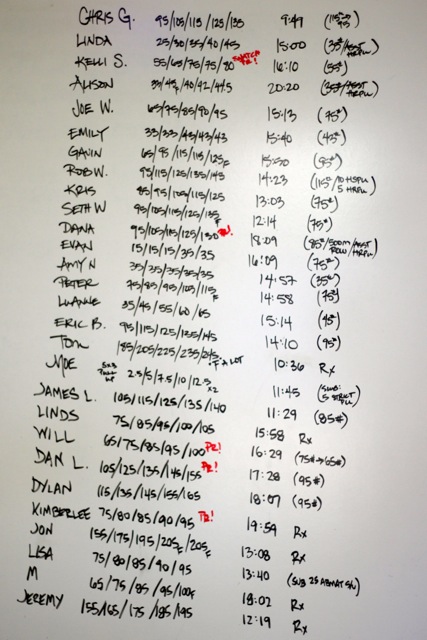 CHRIS G. 95/105/115/125/135 9:49 (115#→95)
LINDA 25/30/35/40/45 15:00 (35#/ASST HRPU)
KELLI S. 55/65/75/75/80 SNATCH PR! 16:10 (55#)
ALISON 40/42/45 20:20 (35#/ASST HRPU)
JOE W. 65/75/85/90/95 15:13 (75#)
EMILY 33/33/43/43/43 15:40 (43#)
GAVIN 65/95/115/115/125F (95#)
ROB W. 95/115/125/135/145 14:23 (115#/10 HSPU 5 HRPU)
KRIS 85/95/105/115/125 13:03 (75#)
SETH W 95/105/115/125/135F 12:14 (75#)
DANA 95/105/115/125/130 18:09 (85#/500M ROW/ASST HRPU)
EVAN 15/15/15/35/35 16:09 (75#)
AMY N 35/35/35/35/35 14:57 (35#)
PETER 75/85/95/105/115F 14:58 (75#)
LUANNE 35/45/55/60/65 15:14 (45#)
ERIC B. 95/115/125/135/145 14:10 (95#)
TOM 185/205/225/235/245 F A LOT 10:36 Rx
MOE 5x3 2.5/5/7.5/10/12.5 x2 11:45 (SUB: 5 STRICT)
JAMES L. 105/115/125/135/140 11:29 (85#)
LINDS 75/85/95/100/105 15:58 Rx
WILL 65/75/85/95/100 PR! 16:29 (75#→65#)
DAN L. 105/125/135/145/155 PR! 17:28 (95#)
DYLAN 115/135/145/155/165 18:07 (95#)
KIMBERLEE 75/80/85/90/95 PR! 19:59 Rx
JON 155/175/195/205F/205F 13:08 Rx
LISA 75/80/85/90/95 13:40 (SUB 25 ABMAT SU)
M 65/75/85/95/100F 18:02 Rx
JEREMY 155/165/175/185/195 12:19 Rx